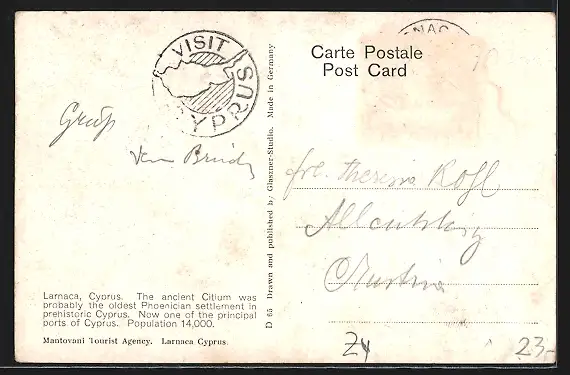 VISIT CYPRUS
Carte Postale
Post Card
Gruß
Bruder
frl. Theresia Kogl
Austria
Larnaca, Cyprus. The ancient Citium was
probably the oldest Phoenician settlement in
prehistoric Cyprus. Now one of the principal
ports of Cyprus. Population 14,000.
Mantovani Tourist Agency. Larnaca Cyprus.
D 65 Drawn and published by Glaszner-Studio. Made in Germany
Zy
23-